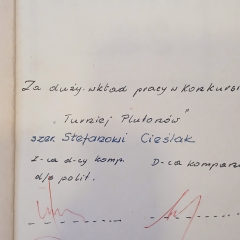 Za duży wkład pracy w Konkursi
„Turniej Plutonów"
szer. Stefanowi Cieślak
Z-ca d-cy komp. D-ca kompani
d/s polit.